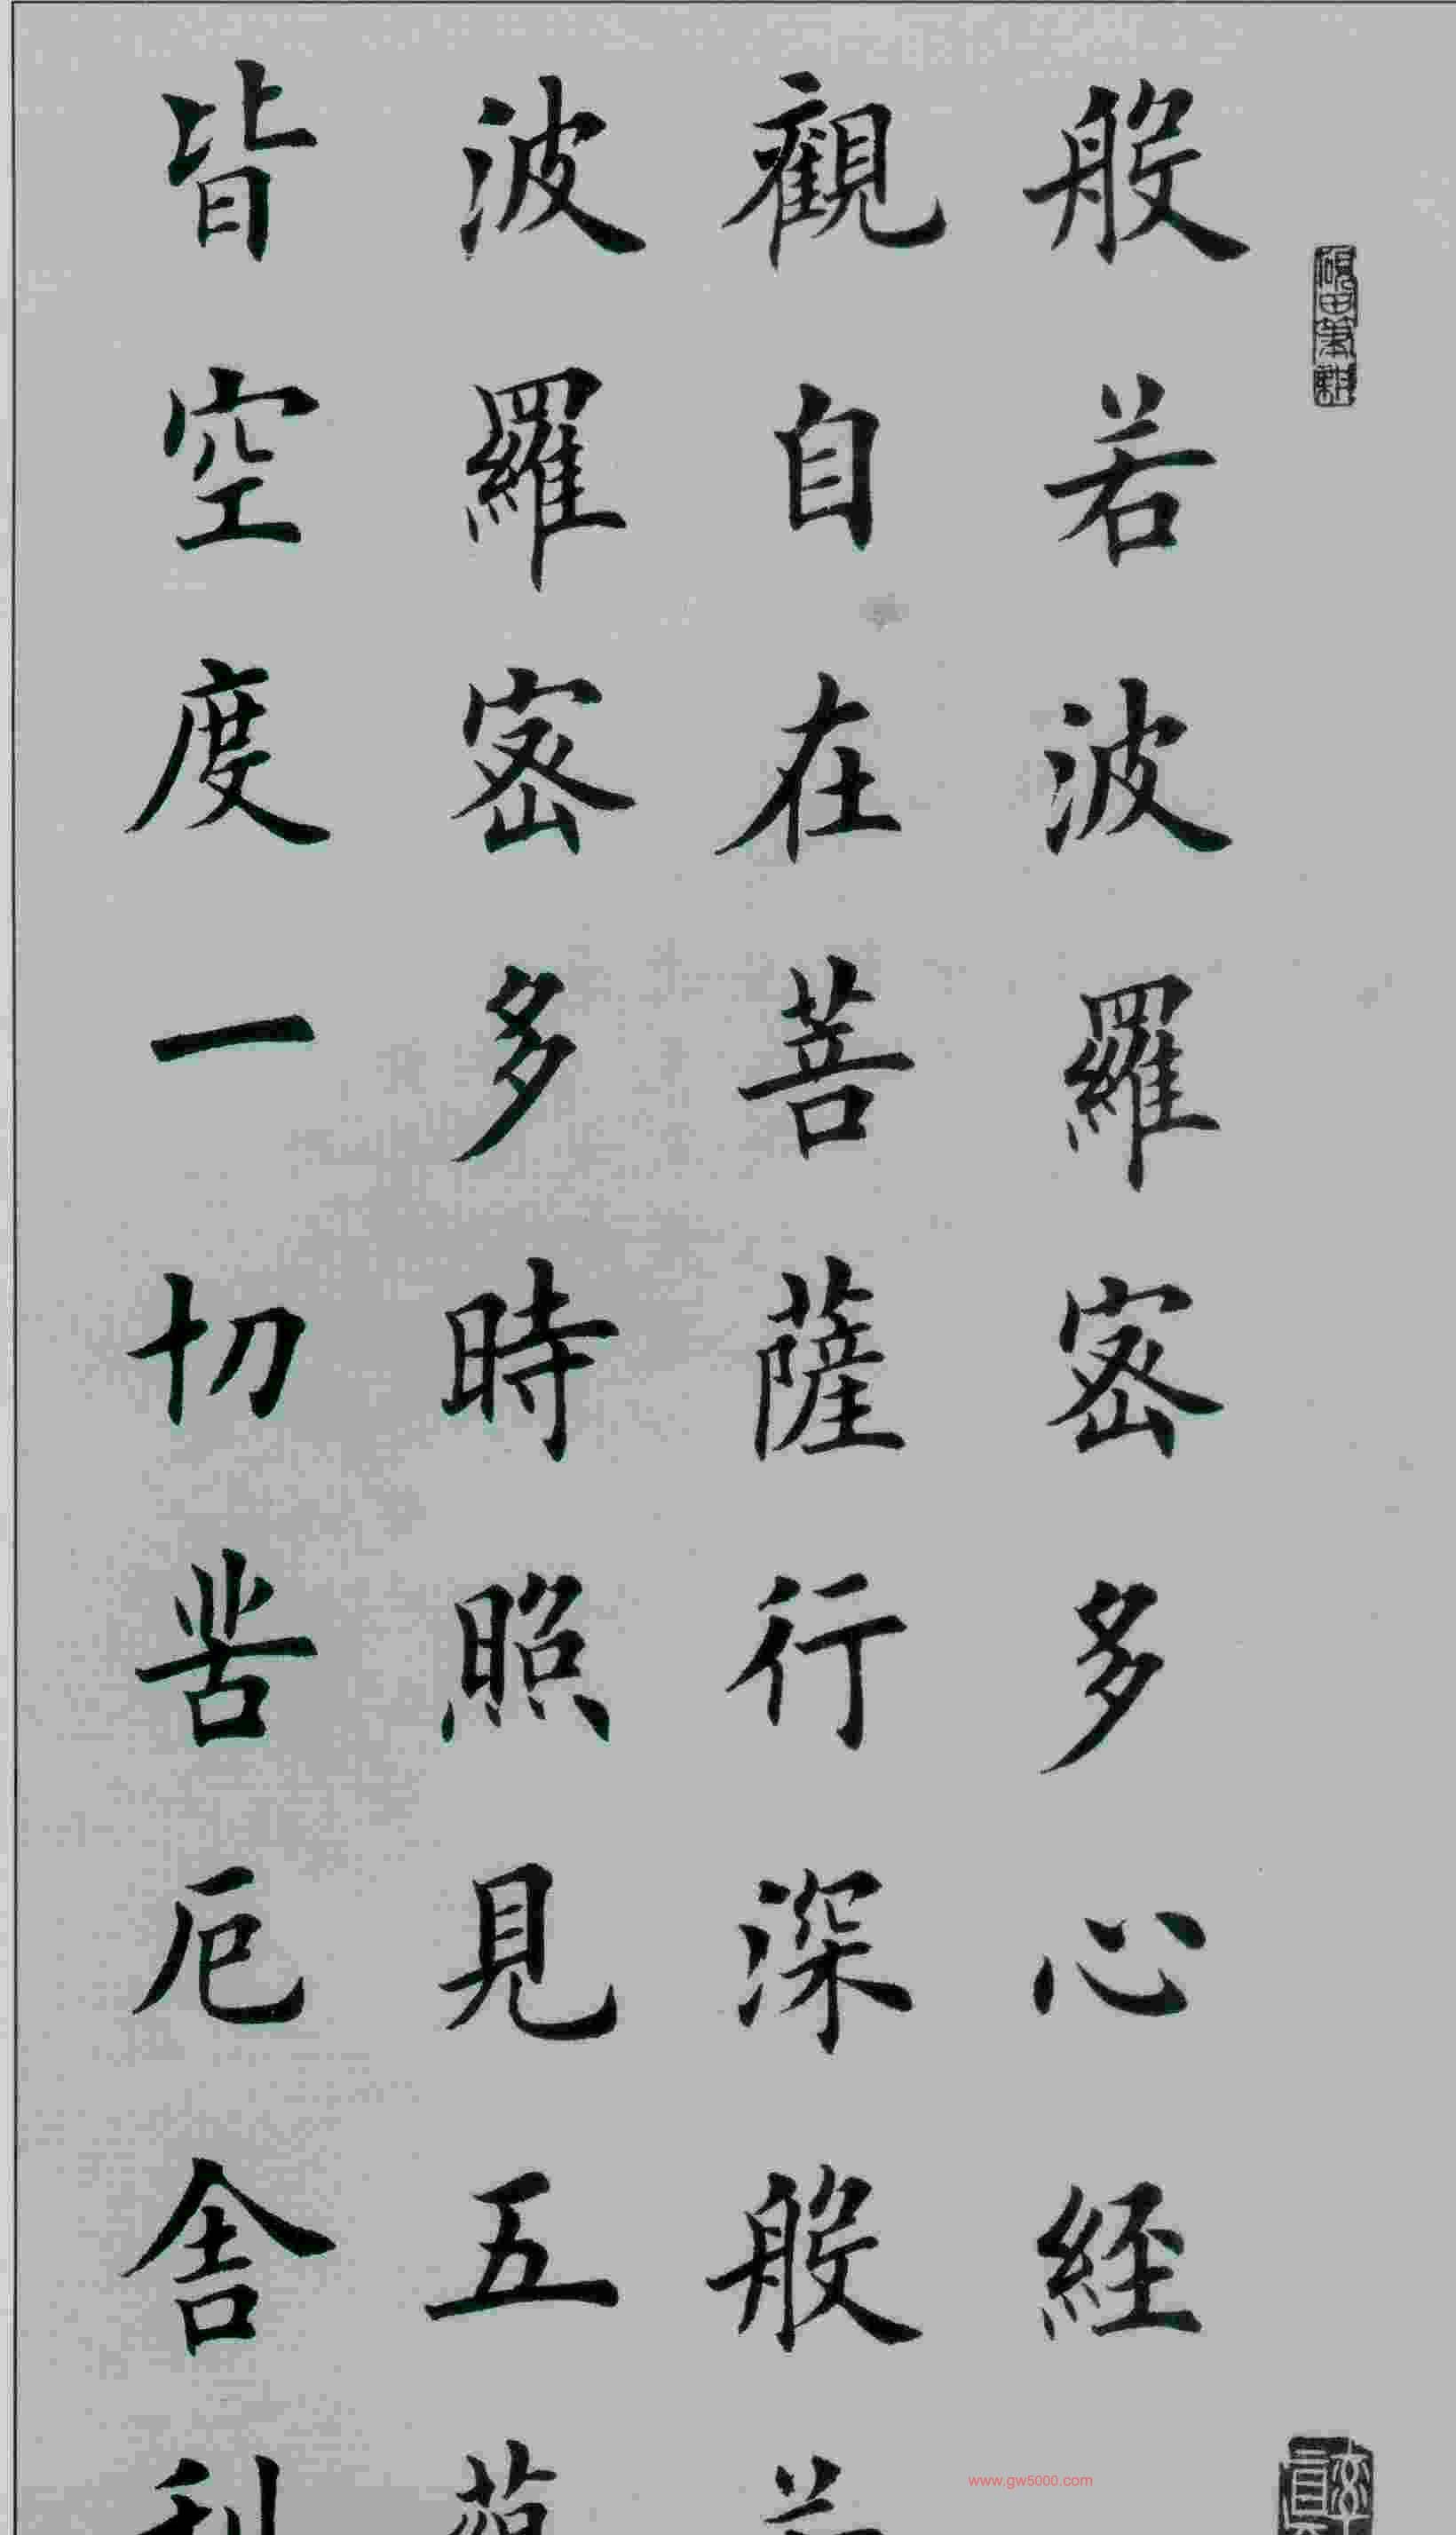 般若波羅密多心經
觀自在菩薩行深般若
波羅密多時照見五蘊
皆空度一切苦厄舍利
硯田筆耕
www.gw5000.com